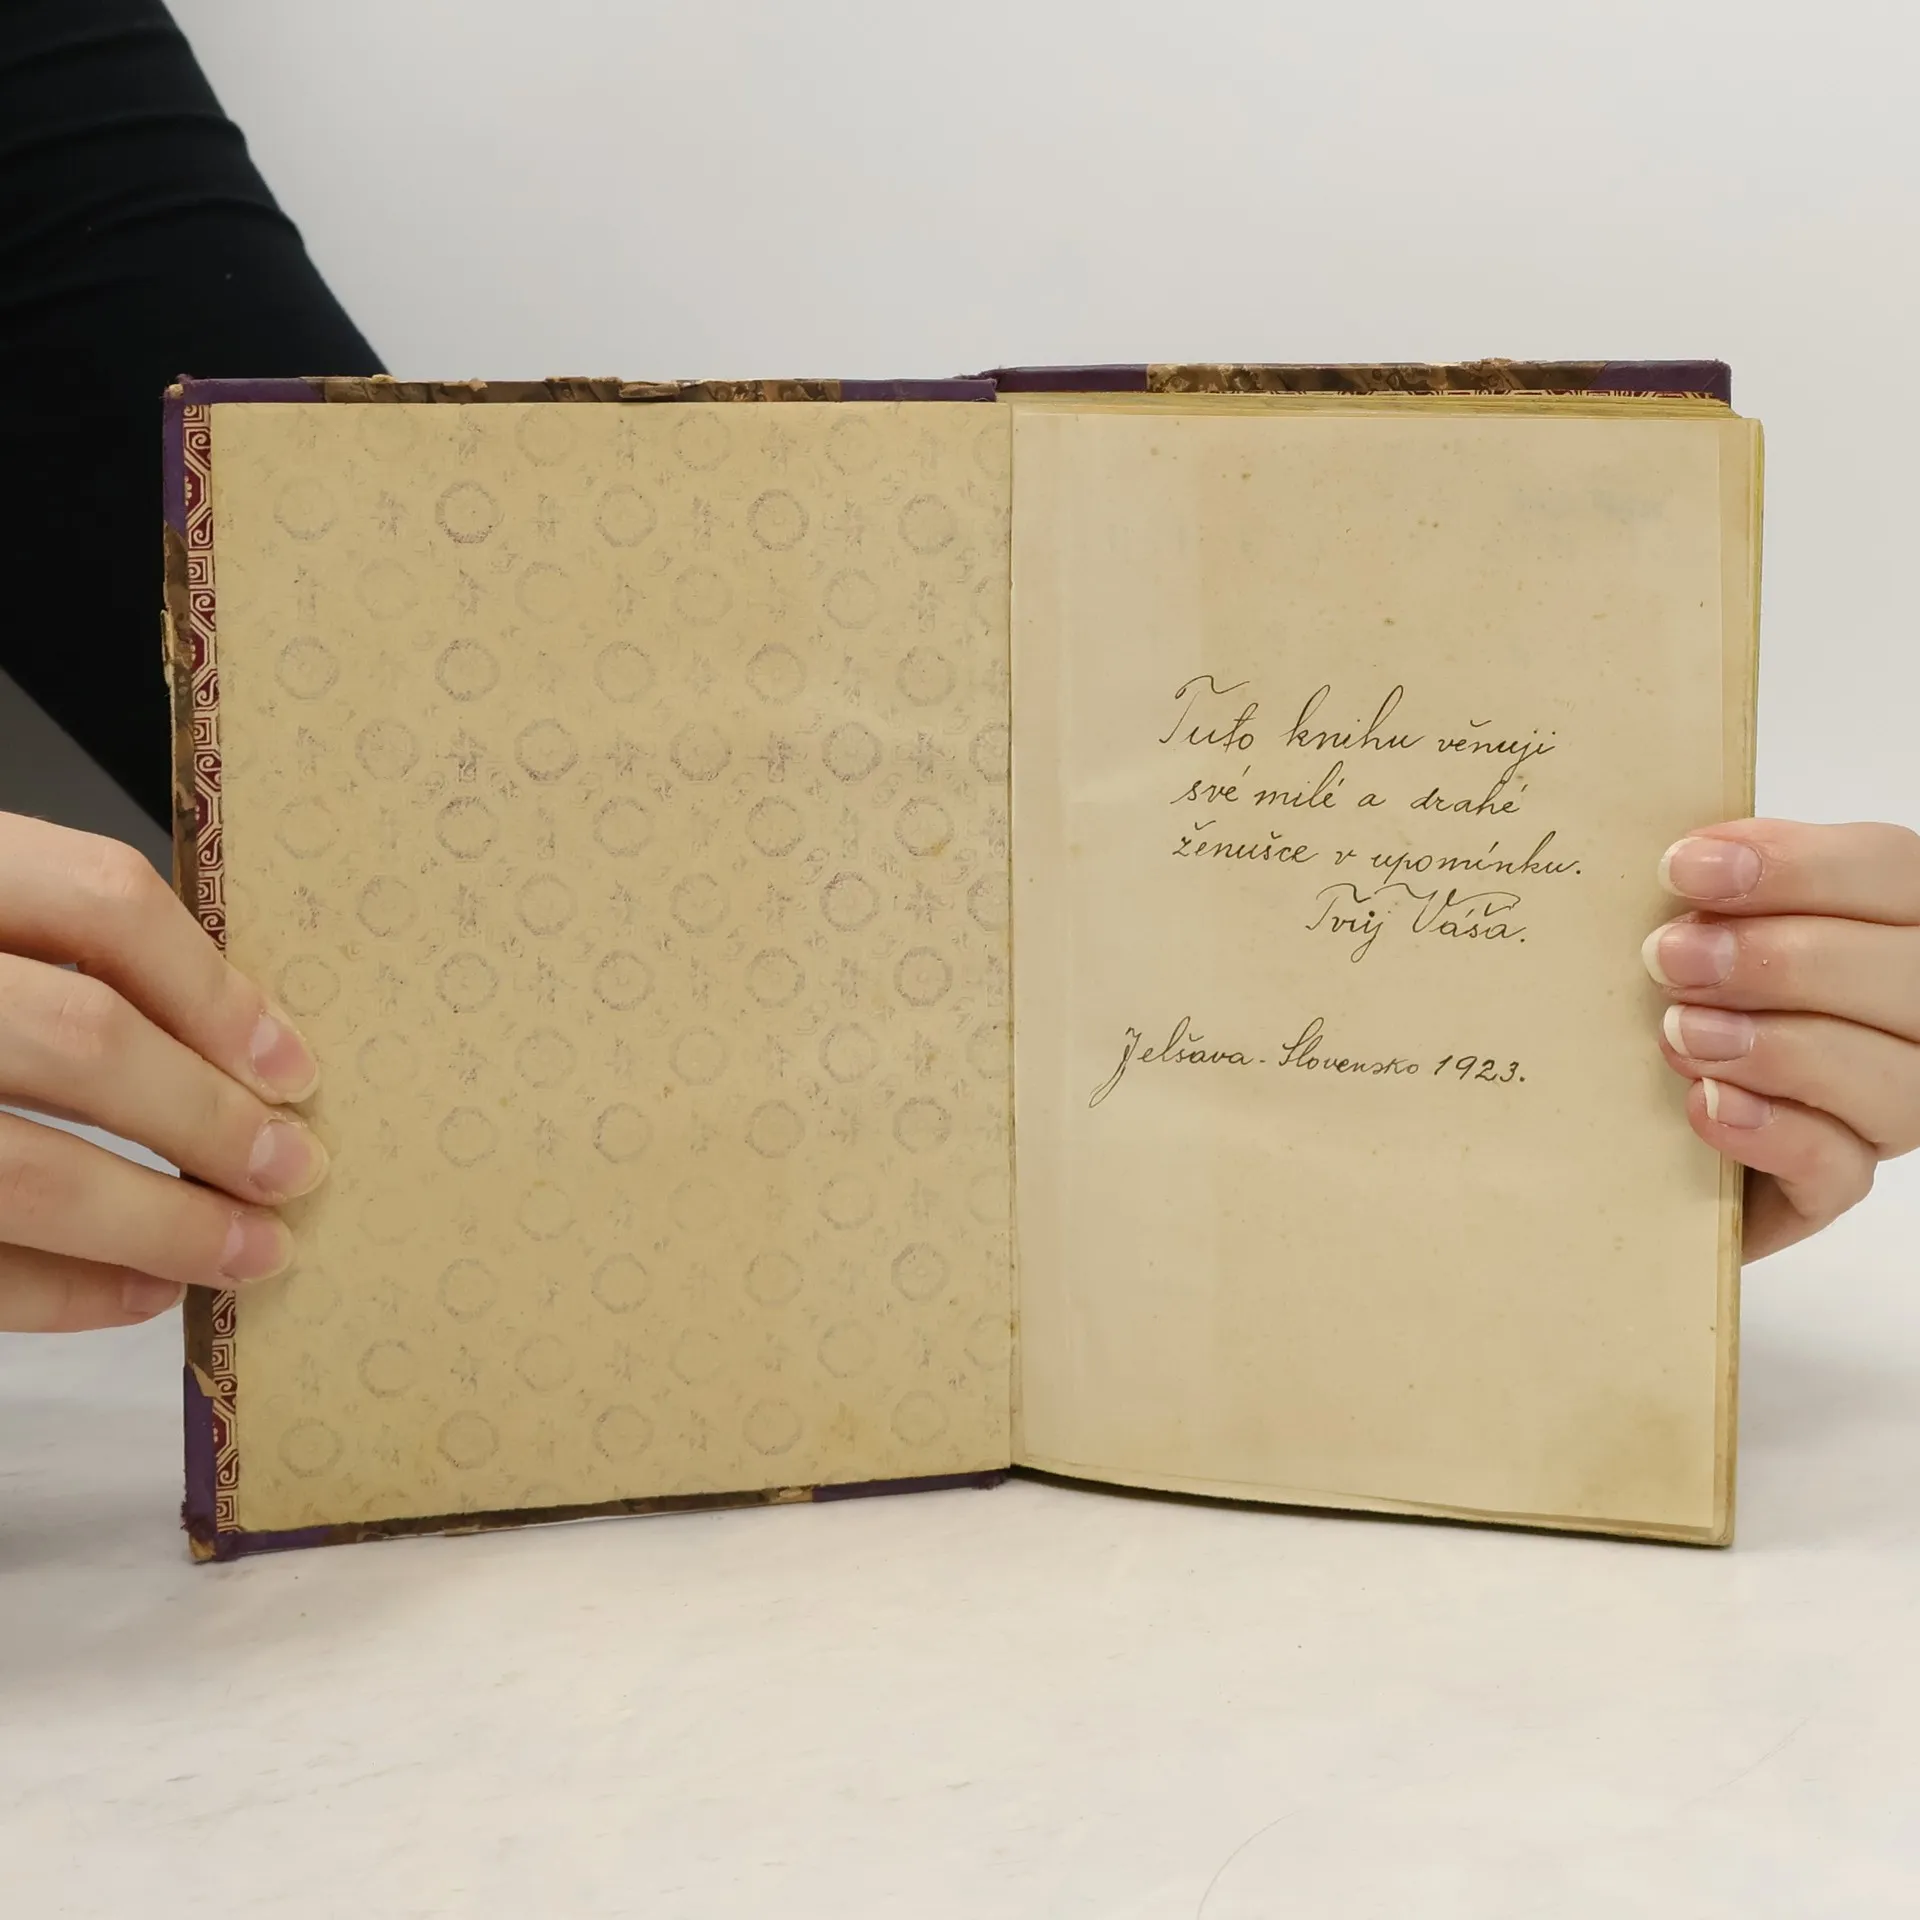 Tuto knihu věnuji
své milé a drahé
ženušce v upomínku.
Tvůj Váša.
Jelšava - Slovensko 1923.